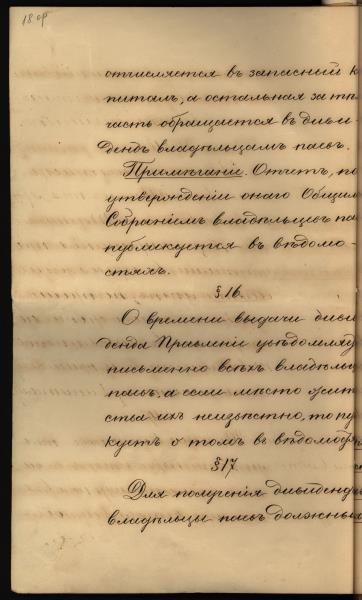 18 об
отчисляется въ запасный к
питалъ, а остальная за тѣм
часть обращается въ диви-
дендъ владѣльцамъ паевъ.
Примѣчаніе. Отчетъ, по
утвержденіи онаго Общим
Собраніемъ владѣльцевъ па
публикуется въ вѣдомо-
стяхъ.
§ 16.
О времени выдачи диви
денда Правленіе увѣдомляе
письменно всѣхъ владѣльц
паевъ, а если мѣсто жит
ства ихъ неизвѣстно, то пу
куетъ о томъ въ вѣдомостя
§ 17
Для полученія дивиденда
владѣльцы паевъ должны